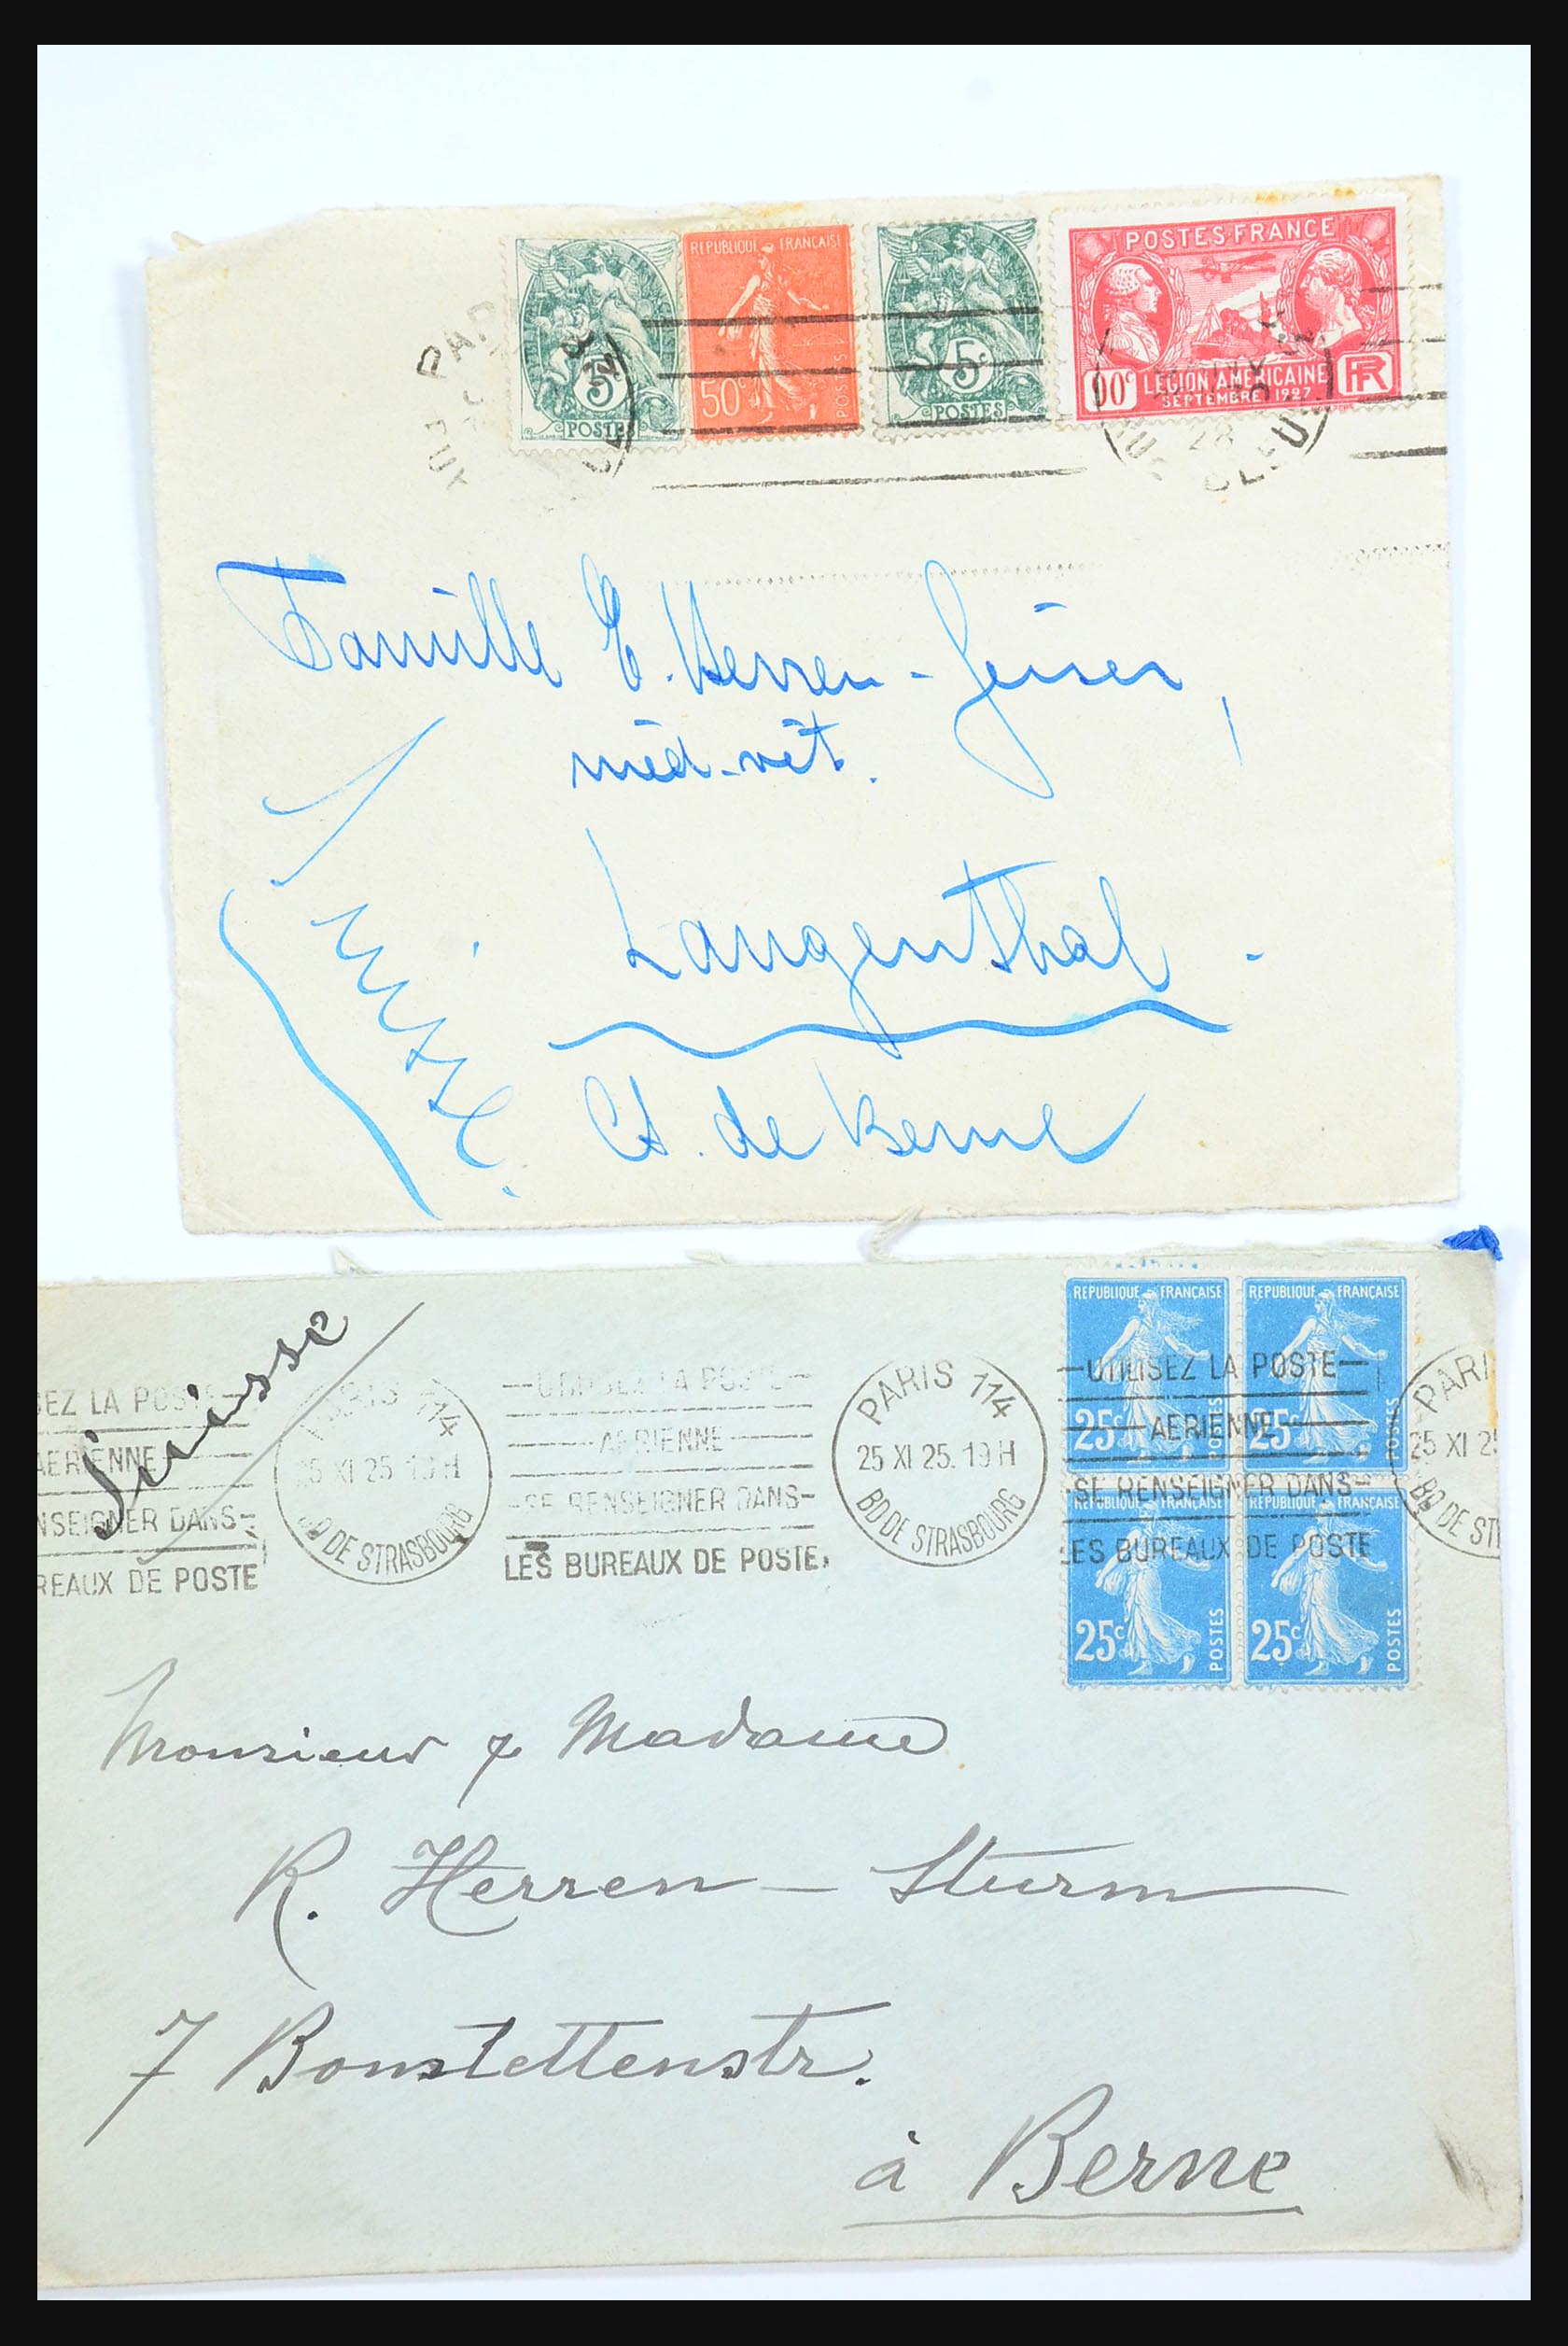 PAR
5c
POSTES
REPUBLIQUE FRANÇAISE
50c
POSTES
5c
POSTES
POSTES·FRANCE
90c LEGION AMERICAINE RF
SEPTEMBRE 1927
28
Famille E. Herren-Geiser,
méd-vét.
Langenthal.
Ct. de Berne
Suisse.
Suisse
REPUBLIQUE FRANÇAISE
25c
POSTES
REPUBLIQUE FRANÇAISE
25c
POSTES
REPUBLIQUE FRANÇAISE
25c
POSTES
REPUBLIQUE FRANÇAISE
25c
POSTES
SEZ LA POSTE
AERIENNE
NSEIGNER DANS
REAUX DE POSTE
PARIS 114
25 XI 25 19H
BD DE STRASBOURG
UTILISEZ LA POSTE
AERIENNE
SE RENSEIGNER DANS
LES BUREAUX DE POSTE
PARIS 114
25 XI 25. 19H
BD DE STRASBOURG
UTILISEZ LA POSTE
AERIENNE
SE RENSEIGNER DANS
LES BUREAUX DE POSTE
PARI
25 XI 25
BD DE ST
Monsieur & Madame
R. Herren - Sturm
7 Bonstettenstr.
à Berne